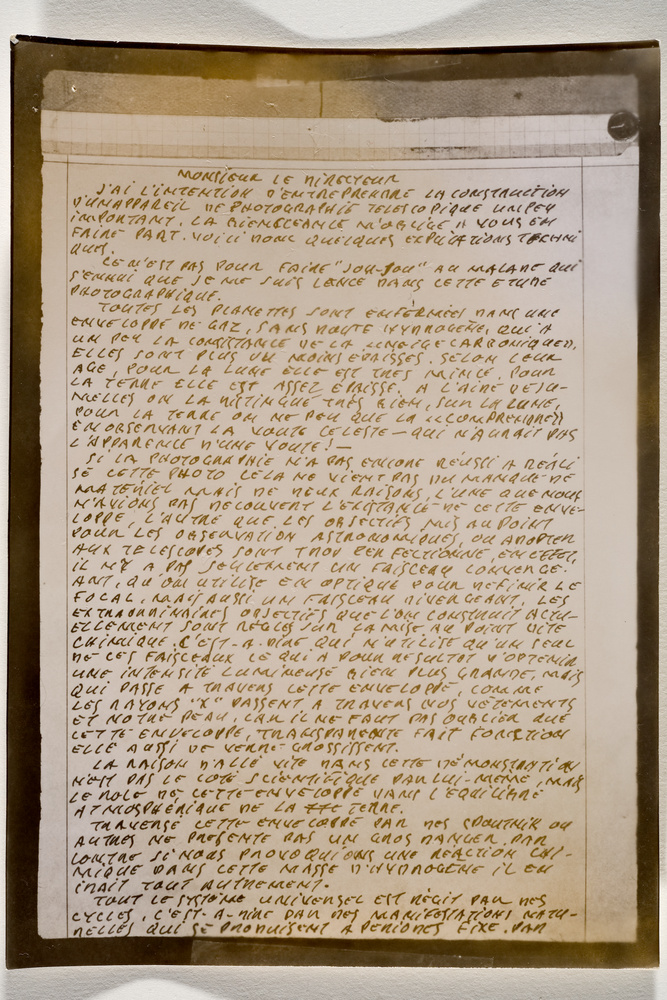 MONSIEUR LE DIRECTEUR
J'AI L'INTENTION D'ENTREPRENDRE LA CONSTRUCTION
D'UN APPAREIL DE PHOTOGRAPHIE TELESCOPIQUE UN PEU
IMPORTANT. LA BIENSCEANCE M'OBLIGE A VOUS EN
FAIRE PART. VOICI DONC QUELQUES EXPLICATIONS TECHNI
QUES.
CE N'EST PAS POUR FAIRE "JOU-JOU" AU MALADE QUI
S'ENNUI QUE JE ME SUIS LANCE DANS CETTE ETUDE
PHOTOGRAPHIQUE.
TOUTES LES PLANETTES SONT ENFERMÉES DANS UNE
ENVELOPPE DE GAZ, SANS DOUTE HYDROGENE, QUI A
UN PEU LA CONSISTANCE DE LA "NEIGE CARBONIQUE",
ELLES SONT PLUS OU MOINS EPAISSES. SELON LEUR
AGE, POUR LA LUNE ELLE EST TRES MINCE. POUR
LA TERRE ELLE EST ASSEZ EPAISSE. A L'AIDE DE JU-
MELLES ON LA DISTINGUE TRES BIEN, SUR LA LUNE,
POUR LA TERRE ON NE PEU QUE LA "COMPRENDRE"
EN OBSERVANT LA VOUTE CELESTE — QUI N'AURAIT PAS
L'APPARENCE D'UNE VOUTE! —
SI LA PHOTOGRAPHIE N'A PAS ENCORE RÉUSSI A RÉALI
SÉ CETTE PHOTO CELA NE VIENT PAS DU MANQUE DE
MATERIEL MAIS DE DEUX RAISONS, L'UNE QUE NOUS
N'AVIONS PAS DECOUVERT L'EXISTANCE DE CETTE ENVE-
LOPPE, L'AUTRE QUE LES OBJECTIFS MIS AU POINT
POUR LES OBSERVATION ASTRONOMIQUES, OU ADOPTER
AUX TELESCOPES SONT TROP PERFECTIONNE, EN EFFET,
IL N'Y A PAS SEULEMENT UN FAISCEAU CONVERGE-
ANT, QU'ON UTILISE EN OPTIQUE POUR DEFINIR LE
FOCAL, MAIS AUSSI UN FAISCEAU DIVERGEANT. LES
EXTRAORDINAIRES OBJECTIFS QUE L'ON CONSTRUIT ACTU-
ELLEMENT SONT REGLES SUR LA MISE AU POINT DITE
CHIMIQUE. C'EST-A-DIRE QUI N'UTILISE QU'UN SEUL
DE CES FAISCEAUX CE QUI A POUR RESULTAT D'OBTENIR
UNE INTENSITE LUMINEUSE BIEN PLUS GRANDE, MAIS
QUI PASSE A TRAVERS CETTE ENVELOPPE, COMME
LES RAYONS "X" PASSENT A TRAVERS NOS VETEMENTS
ET NOTRE PEAU, CAR IL NE FAUT PAS OUBLIER QUE
CETTE ENVELOPPE, TRANSPARENTE FAIT FONCTION
ELLE AUSSI DE VERRE GROSSISSENT.
LA RAISON D'ALLÉ VITE DANS CETTE DÉMONSTRATION
N'EST PAS LE COTÉ SCIENTIFIQUE PAR LUI-MEME, MAIS
LE ROLE DE CETTE ENVELOPPE DANS L'EQUILIBRE
ATMOSPHÉRIQUE DE LA TERRE.
TRAVERSÉ CETTE ENVELOPPE PAR DES SPOUTNIK OU
AUTRES NE PRESENTE PAS UN GROS DANGER. PAR
CONTRE SI NOUS PROVOQUIONS UNE REACTION CHI-
MIQUE DANS CETTE MASSE D'HYDROGENE IL EN
IRAIT TOUT AUTREMENT.
TOUT LE SYSTÈME UNIVERSEL EST RÉGIT PAR DES
CYCLES, C'EST-A-DIRE PAR DES MANIFESTATIONS NATU-
RELLES QUI SE PRODUISENT A PERIODES FIXE. PAR